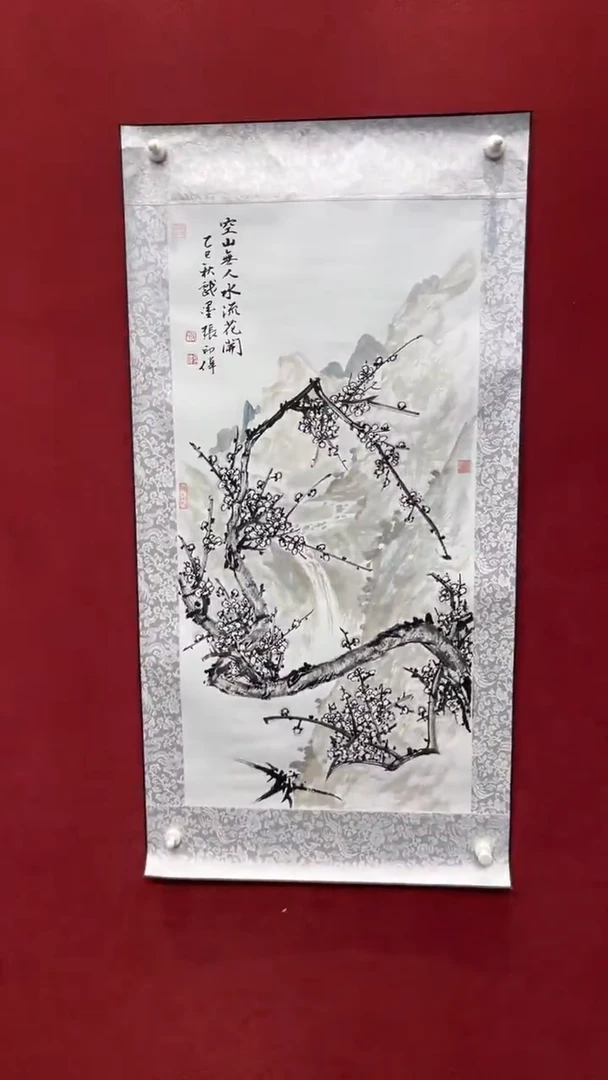 空山無人水流花開
乙巳秋戲墨張初偉